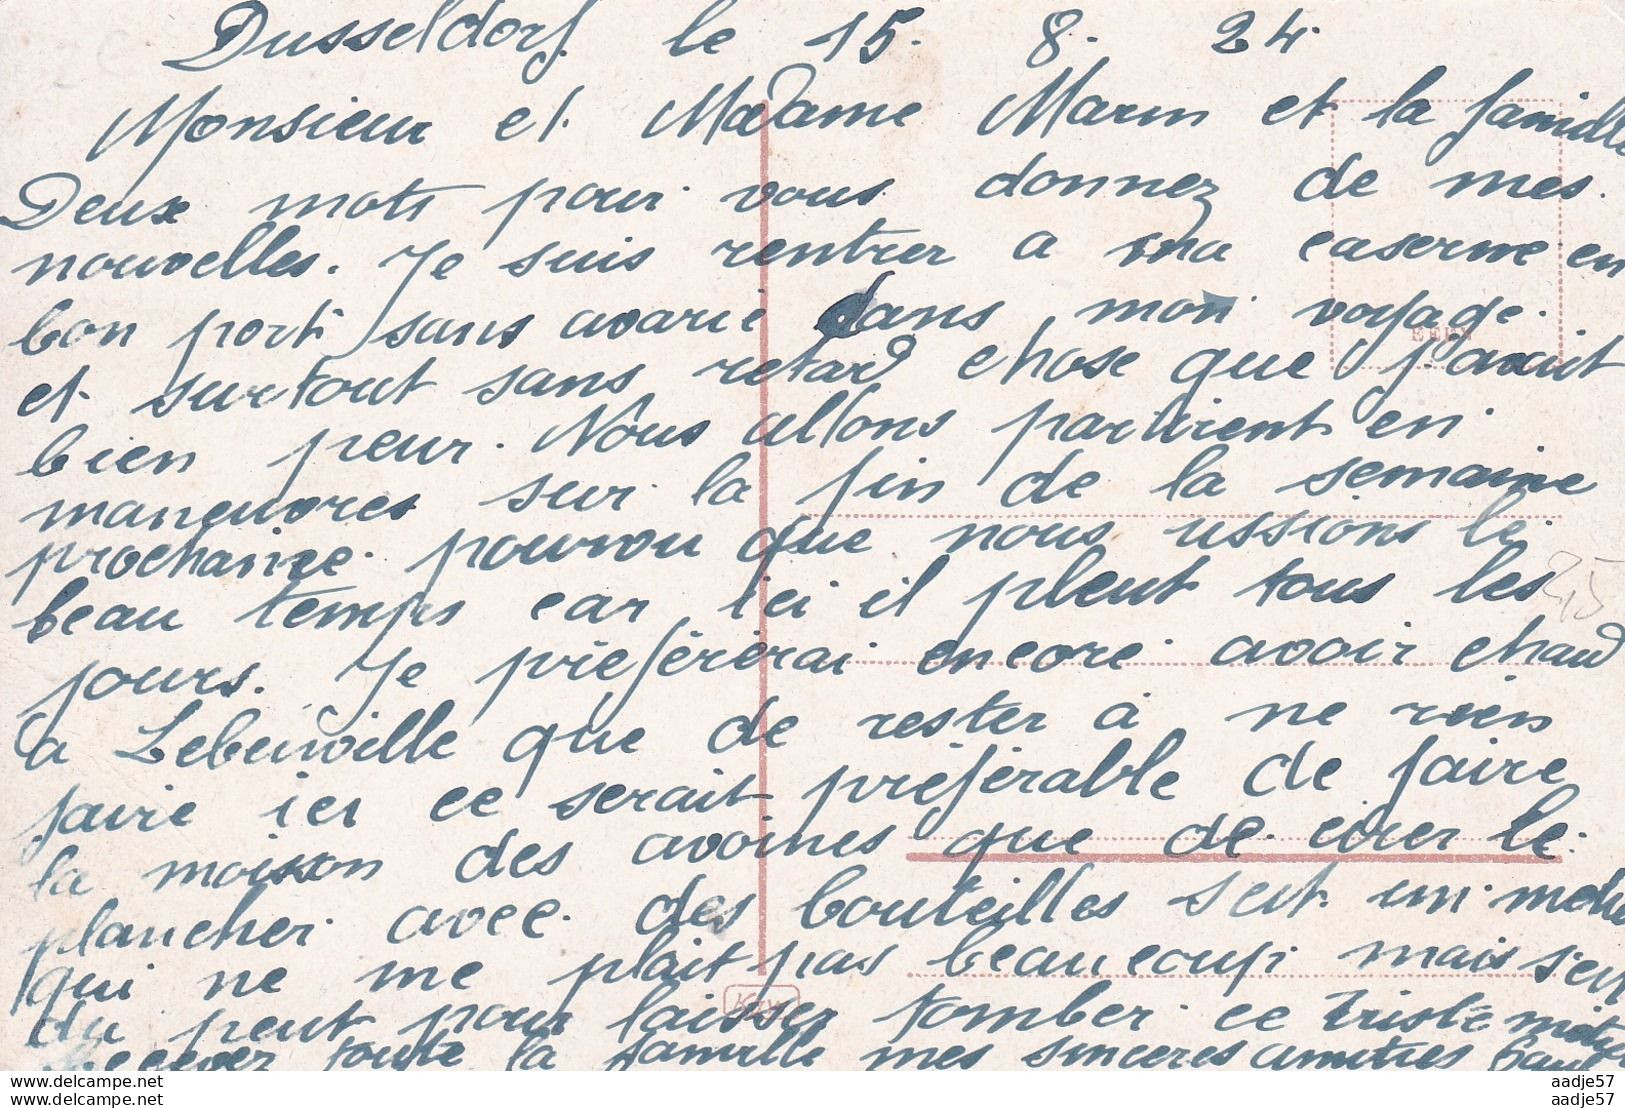 Dusseldorf le 15. 8. 24.
Monsieur et Madame Marin et la famille
Deux mots pour vous donnez de mes
nouvelles. Je suis rentrer a ma caserne en
bon port sans avarie dans mon voyage.
et surtout sans retard chose que j'avait
bien peur. Nous allons partirent en
maneuvres sur la fin de la semaine
prochaine pourvou que nous ussions le
beau temps car ici il pleut tous les
jours. Je préférerai encore avoir chaud
a que de rester à ne rien
faire ici ce serait préférable de faire
la moison des avoines que de cirer le
plancher avec des bouteilles sest un
qui ne me plait pas beaucoup mais s'est
du peut pour laisser tomber ce triste
Recever toute la famille mes sinceres amities
25
aadje57
aadje57